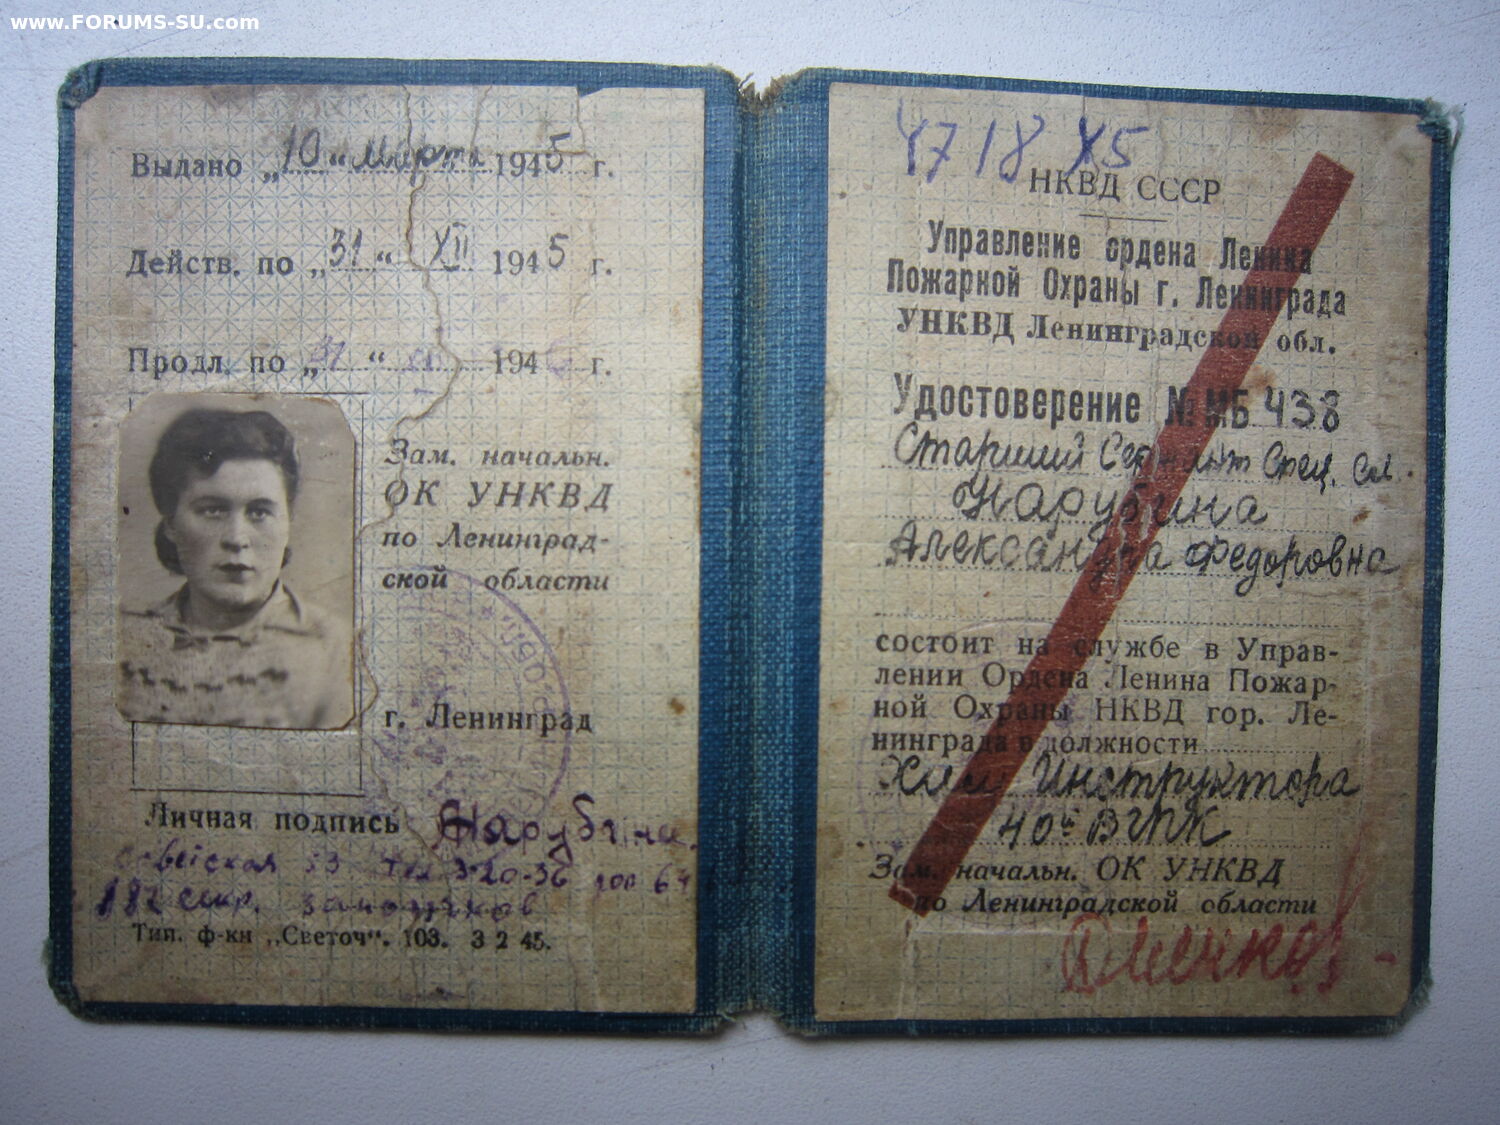 www.FORUMS-SU.com
Выдано „10“ Марта 1945 г.
Действ. по „31“ XII 1945 г.
Продл. по „31“ 194 г.
Зам. начальн.
ОК УНКВД
по Ленинград-
ской области
г. Ленинград
Личная подпись Нарубина.
53 3-20-36 64
182 стр.
Тип. ф-ки „Светоч“. 103. 3 2 45.
4718 X5
НКВД СССР
Управление ордена Ленина
Пожарной Охраны г. Ленинграда
УНКВД Ленинградской обл.
Удостоверение № МБ 438
Старший Сержант Спец. сл.
Нарубина
Александра Федоровна
состоит на службе в Управ-
лении Ордена Ленина Пожар-
ной Охраны НКВД гор. Ле-
нинграда в должности
Хим Инструктора
40й ВГПК
Зам. начальн. ОК УНКВД
по Ленинградской области